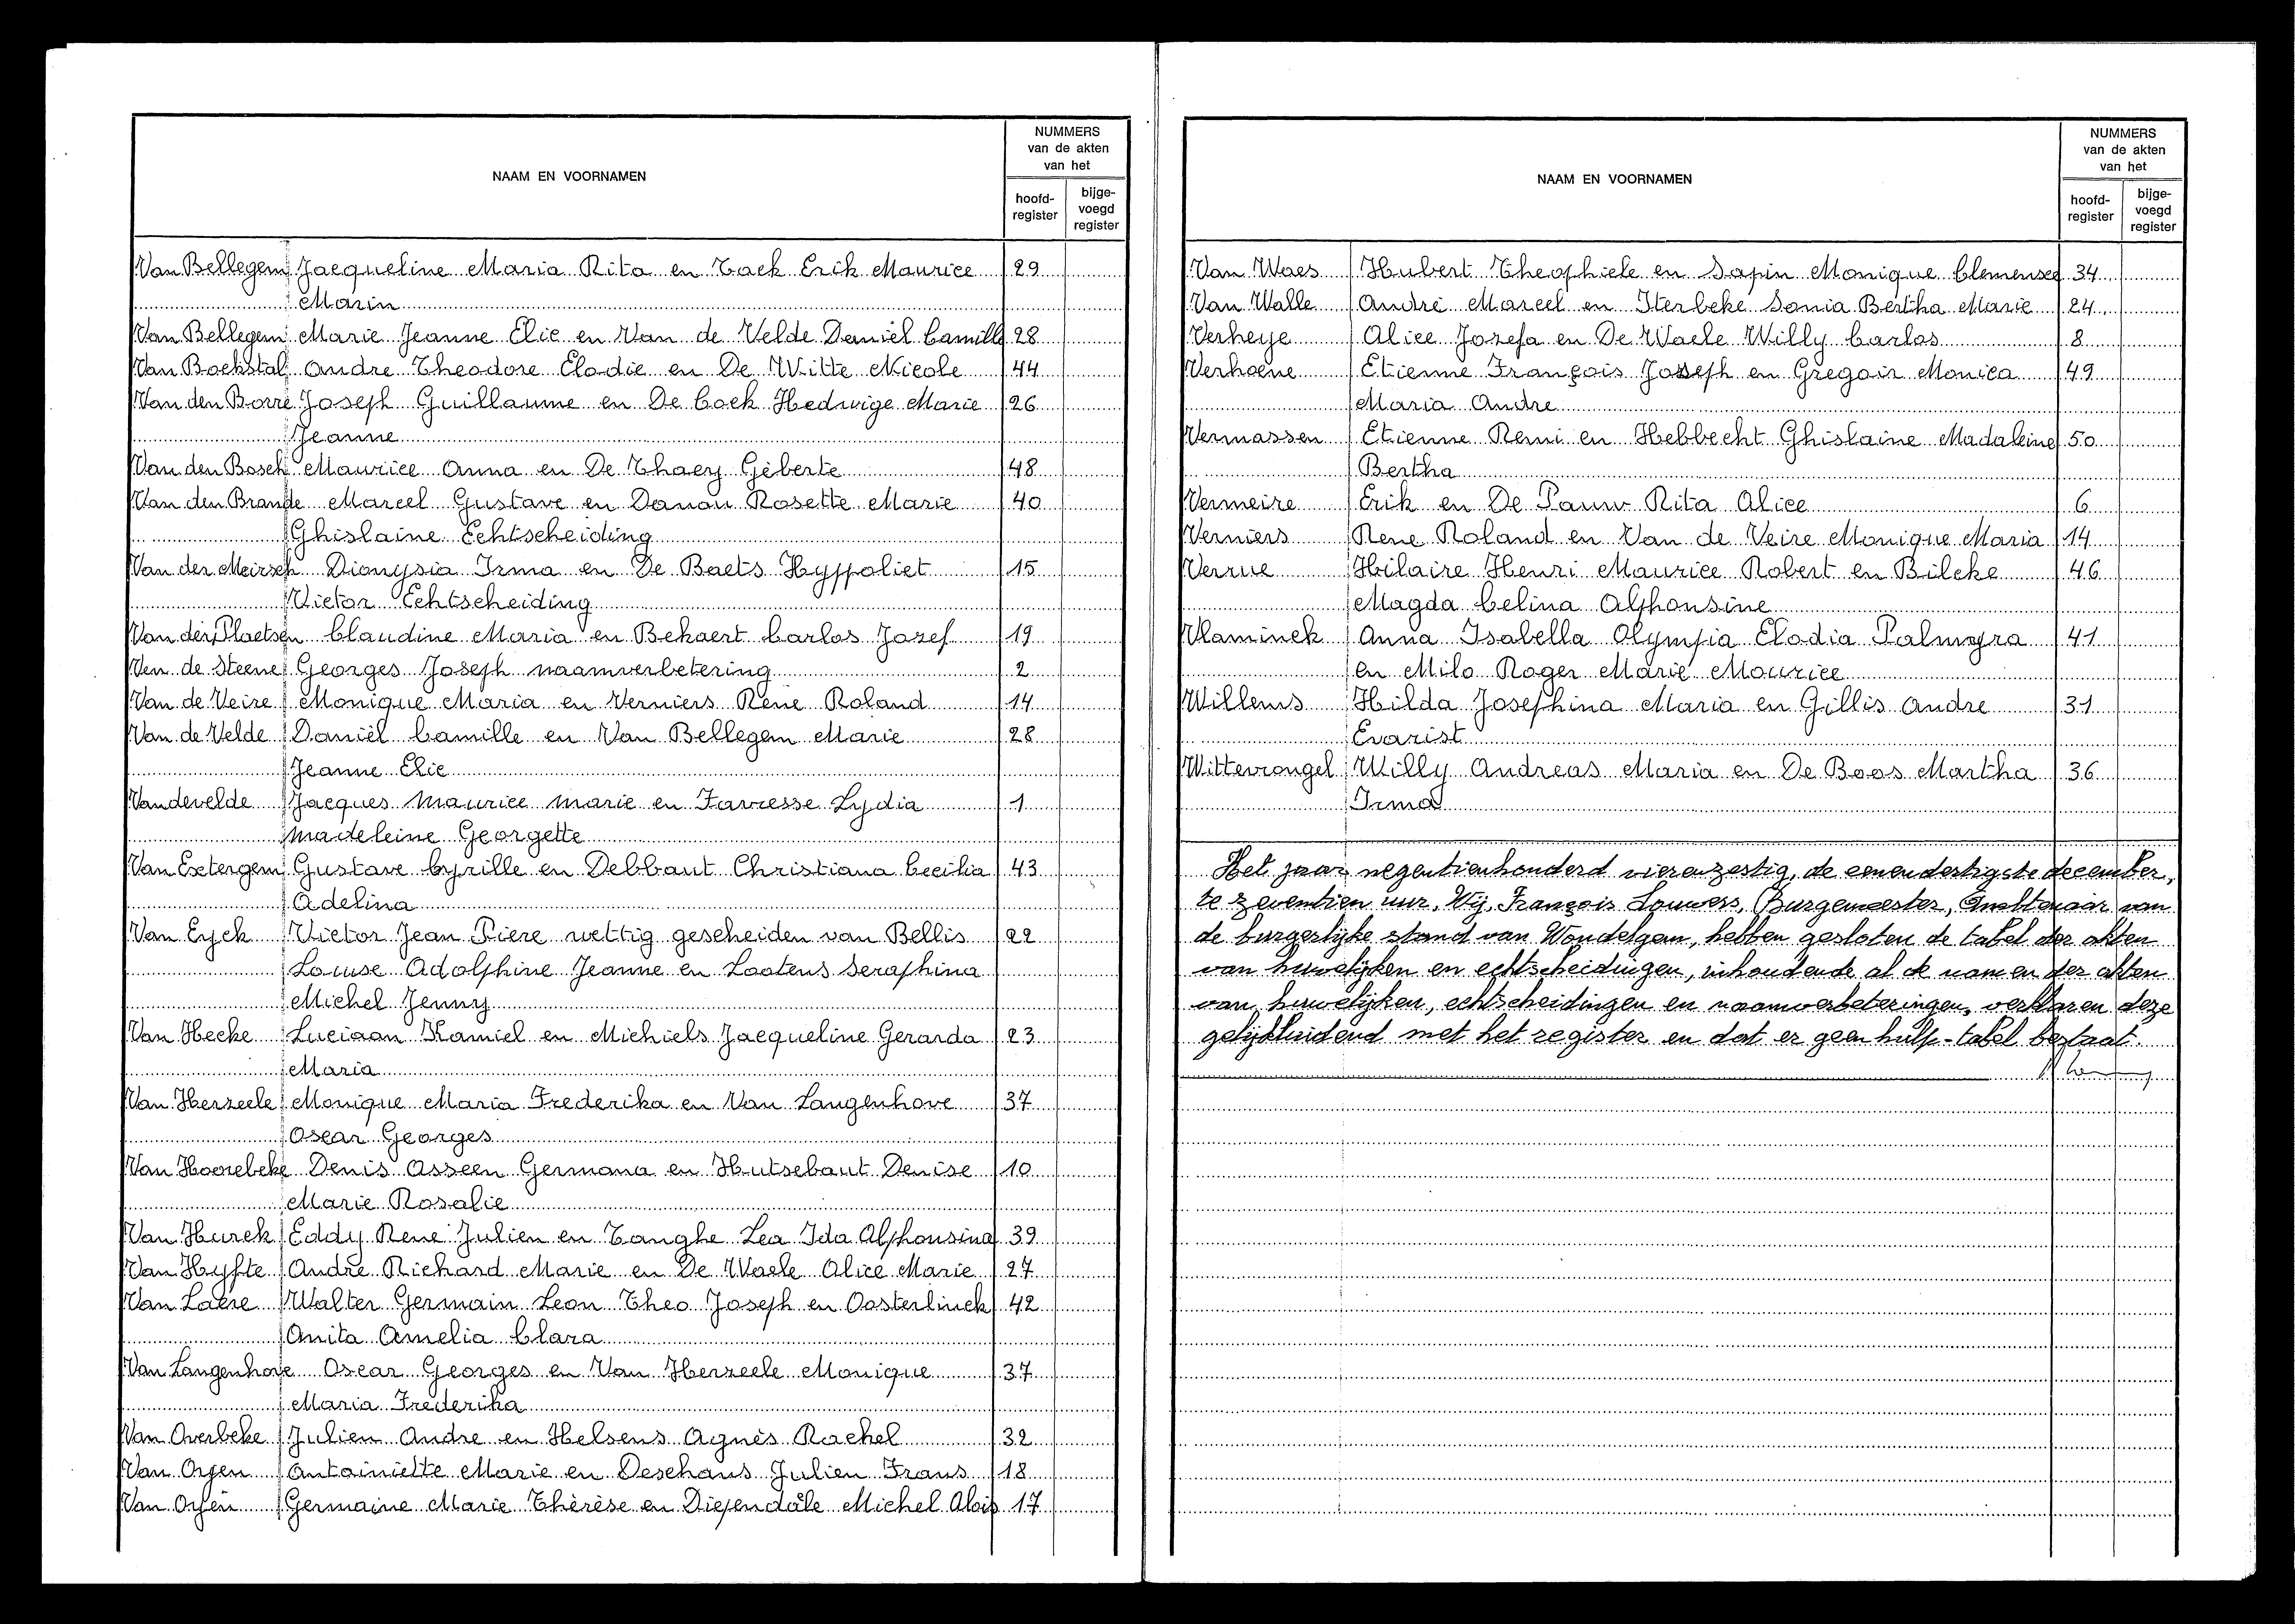 NAAM EN VOORNAMEN
NUMMERS
van de akten
van het
hoofd-
register
bijge-
voegd
register
Van Bellegem Jacqueline Maria Rita en Tack Erik Maurice 29
Marin
Van Bellegem Marie Jeanne Elie en Van de Velde Daniël Camille 28
Van Bockstal Andre Theodore Elodie en De Witte Nicole 44
Van den Borre Joseph Guillaume en De Cock Hedwige Marie 26
Jeanne
Van den Bosch Maurice Anna en De Thaey Géberte 48
Van den Brande Marcel Gustave en Danau Rosette Marie 40
Ghislaine Echtscheiding
Van der Meirsch Dionysia Irma en De Baets Hyppoliet 15
Victor Echtscheiding
Van der Plaetsen Claudine Maria en Bekaert Carlos Jozef 19
Van de Steene Georges Joseph naamverbetering 2
Van de Veire Monique Maria en Verniers Rene Roland 14
Van de Velde Daniël Camille en Van Bellegem Marie 28
Jeanne Elie
Vandevelde Jacques Maurice Marie en Favresse Lydia 1
Madeleine Georgette
Van Extergem Gustave Cyrille en Debbaut Christiana Cecilia 43
Adelina
Van Eyck Victor Jean Piere wettig gescheiden van Bellis 22
Louise Adolphine Jeanne en Lootens Seraphina
Michel Jenny
Van Hecke Luciaan Kamiel en Michiels Jacqueline Gerarda 23
Maria
Van Herzeele Monique Maria Frederika en Van Langenhove 37
Oscar Georges
Van Hoorebeke Denis Osseen Germana en Hutsebaut Denise 10
Marie Rosalie
Van Hurck Eddy Rene Julien en Tanghe Lea Ida Alphonsina 39
Van Hyfte André Richard Marie en De Waele Alice Marie 27
Van Laere Walter Germain Leon Theo Joseph en Oosterlinck 42
Anita Amelia Clara
Van Langenhove Oscar Georges en Van Herzeele Monique 37
Maria Frederika
Van Overbeke Julien Andre en Helsens Agnès Rachel 32
Van Oyen Antoiniette Marie en Deschans Julien Frans 18
Van Oyen Germaine Marie Thérèse en Diependale Michel Alois 17
NAAM EN VOORNAMEN
NUMMERS
van de akten
van het
hoofd-
register
bijge-
voegd
register
Van Waes Hubert Theophiele en Sapin Monique Clemensee 34
Van Walle André Marcel en Iterbeke Sonia Bertha Marie 24
Verheye Alice Jozefa en De Waele Willy Carlos 8
Verhoene Etienne François Joseph en Gregoir Monica 49
Maria Andre
Vermassen Etienne Remi en Hebbecht Ghislaine Madaleine 50
Bertha
Vermeire Erik en De Pauw Rita Alice 6
Verniers Rene Roland en Van de Veire Monique Maria 14
Verrue Hilaire Henri Maurice Robert en Bilcke 46
Magda Celina Alphonsine
Vlaminck Anna Isabella Olympia Elodia Palmyra 41
en Milo Roger Marie Mourice
Willems Hilda Josephina Maria en Gillis Andre 31
Evarist
Wittevrongel Willy Andreas Maria en De Boos Martha 36
Irma
Het jaar negentienhonderd vierenzestig, de eenendertigste december,
te zeventien uur, Wij, François Louwers, Burgemeester, Ambtenaar van
de burgerlijke stand van Wondelgem, hebben gesloten de tabel der akten
van huwelijken en echtscheidingen, inhoudende al de namen der akten
van huwelijken, echtscheidingen en naamverbeteringen, verklaren deze
gelijkluidend met het register en dat er geen hulp-tabel bestaat.